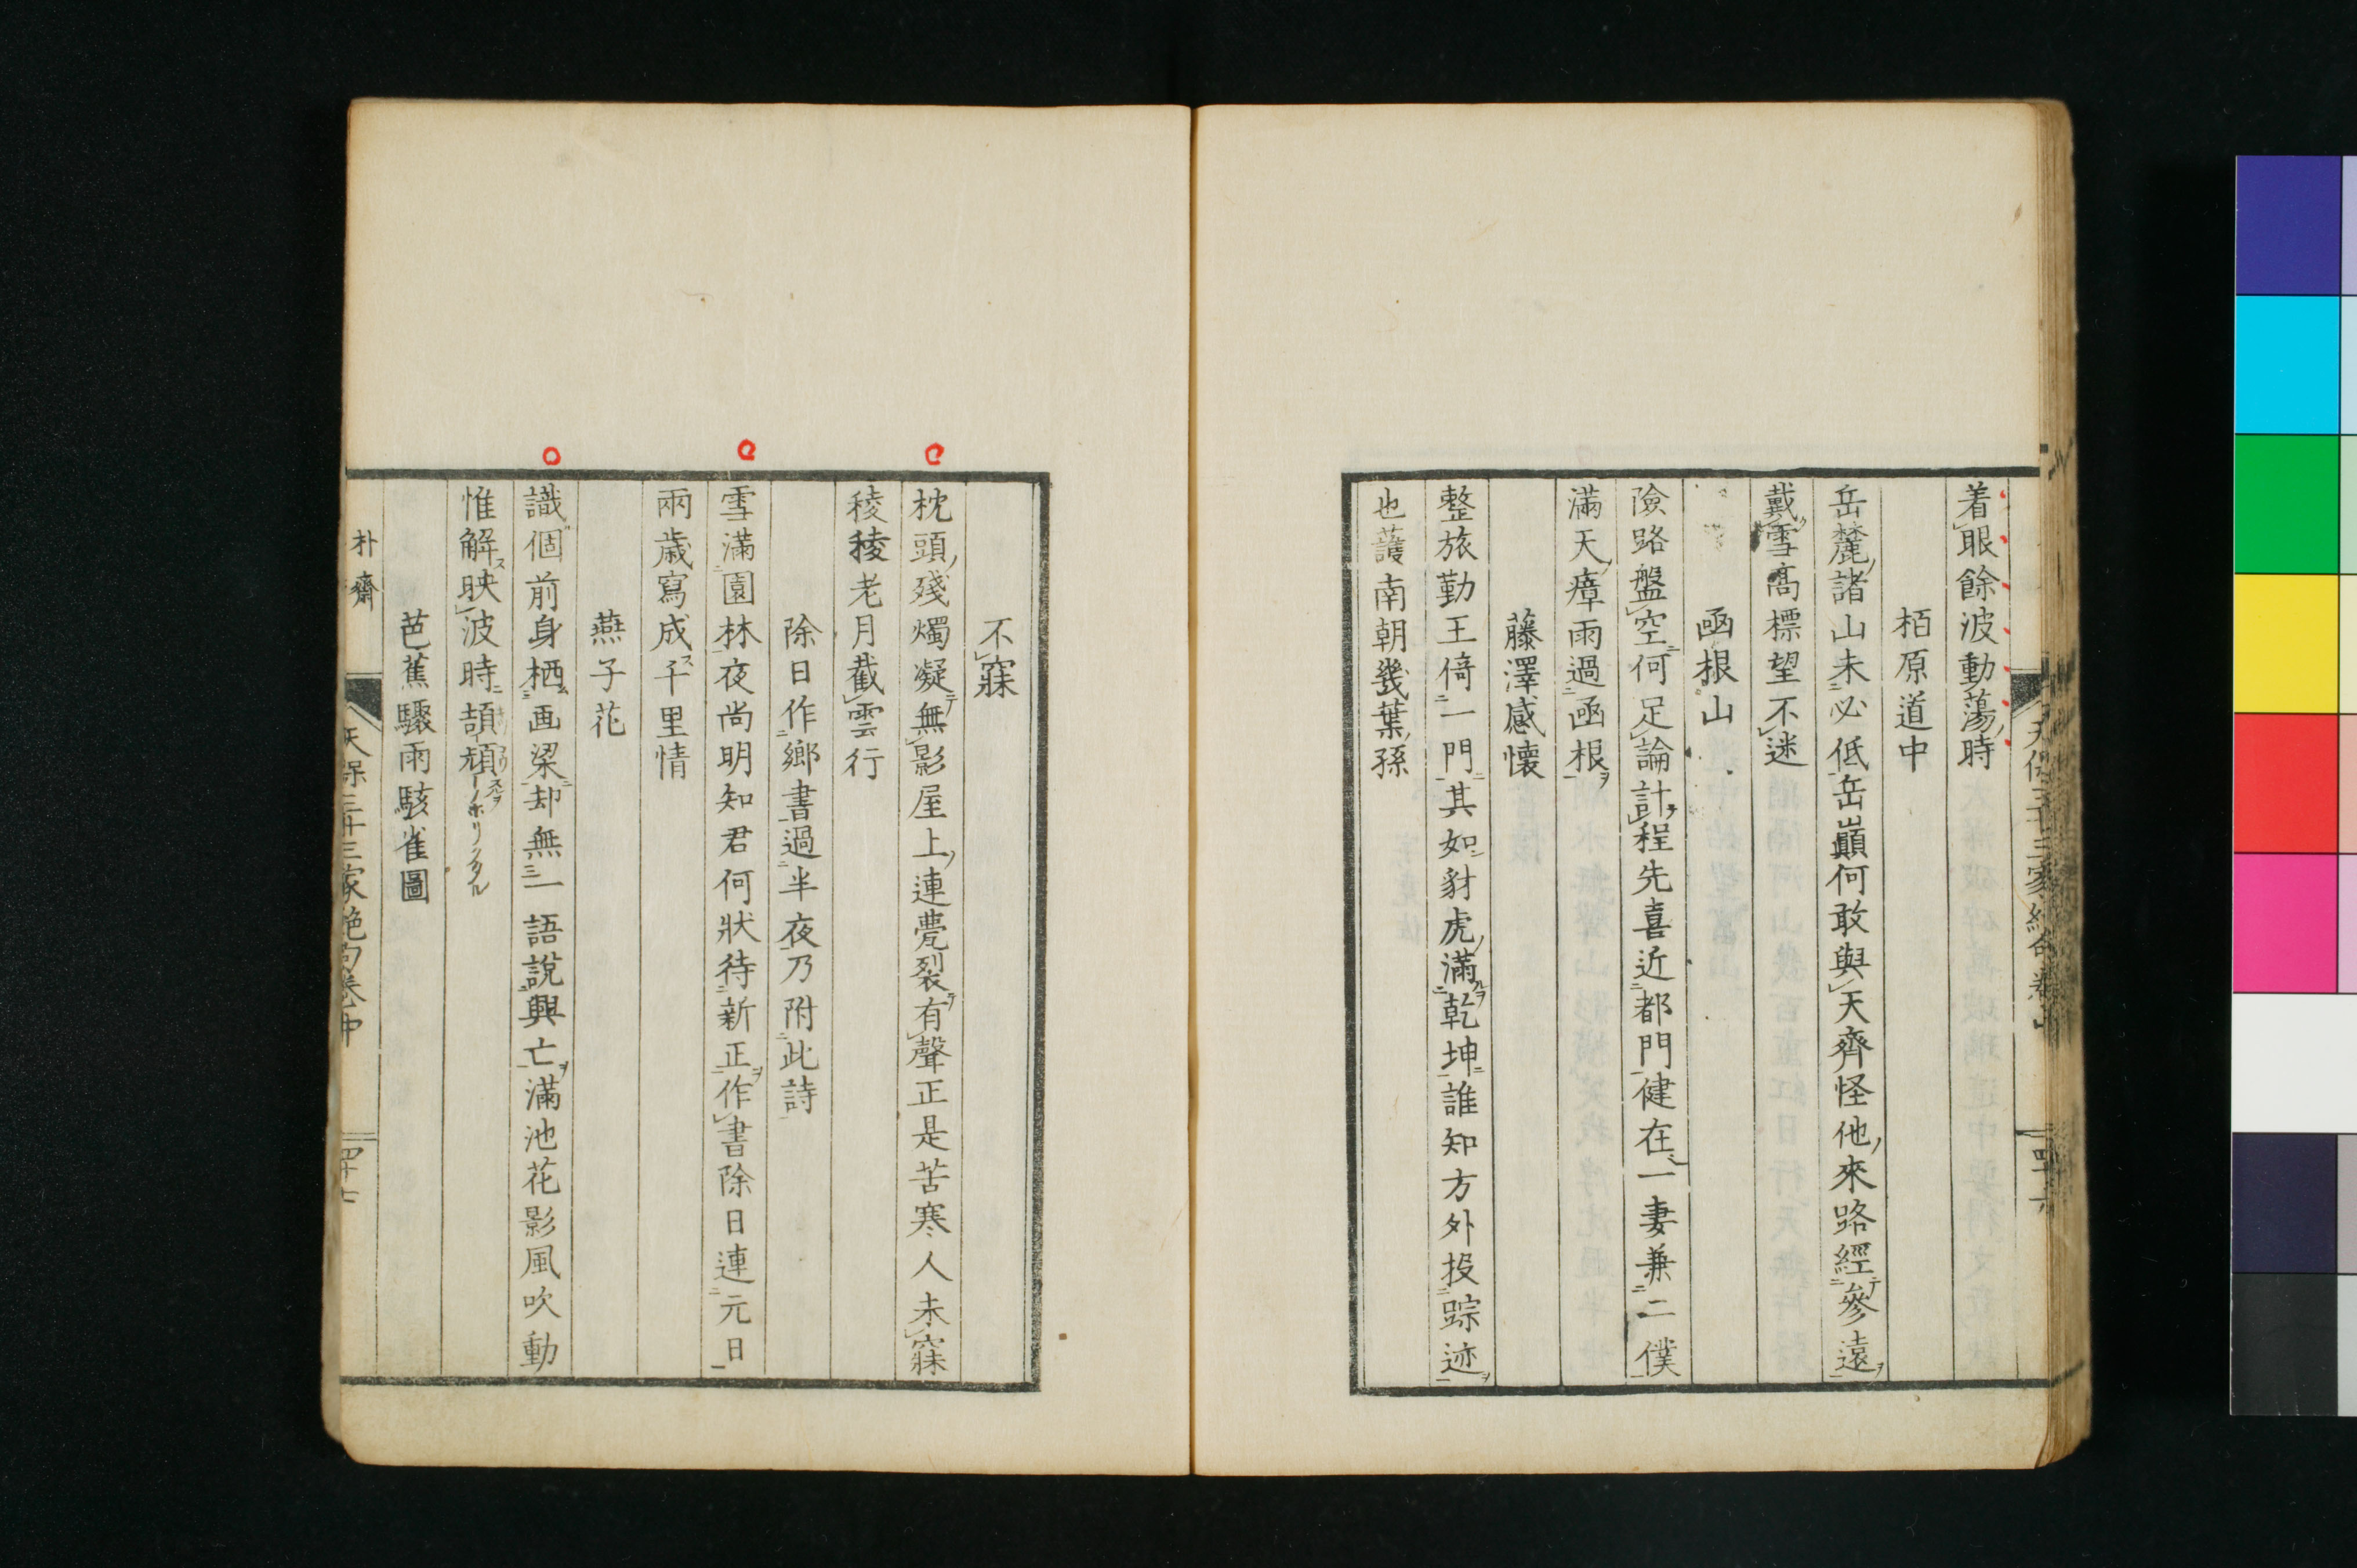 着眼餘波動蕩時
栢原道中
岳麓諸山未必低岳巓何敢與天齊怪他來路經參遠
戴雪高標望不迷
凾根山
險路盤空何足論計程先喜近都門健在一妻兼二僕
滿天瘴雨過凾根
藤澤感懷
整旅勤王倚一門其如豺虎滿乾坤誰知方外投踪迹
也護南朝幾葉孫
不寐
枕頭殘燭凝無影屋上連甍裂有聲正是苦寒人未寐
稜稜老月截雲行
除日作鄉書過半夜乃附此詩
雪滿園林夜尚明知君何狀待新正作書除日連元日
兩歲寫成千里情
燕子花
識個前身栖画梁却無一語說興亡滿池花影風吹動
惟解映波時頡頏
芭蕉驟雨駭雀圖
朴齋
天保三十三家絶句卷中
四十七